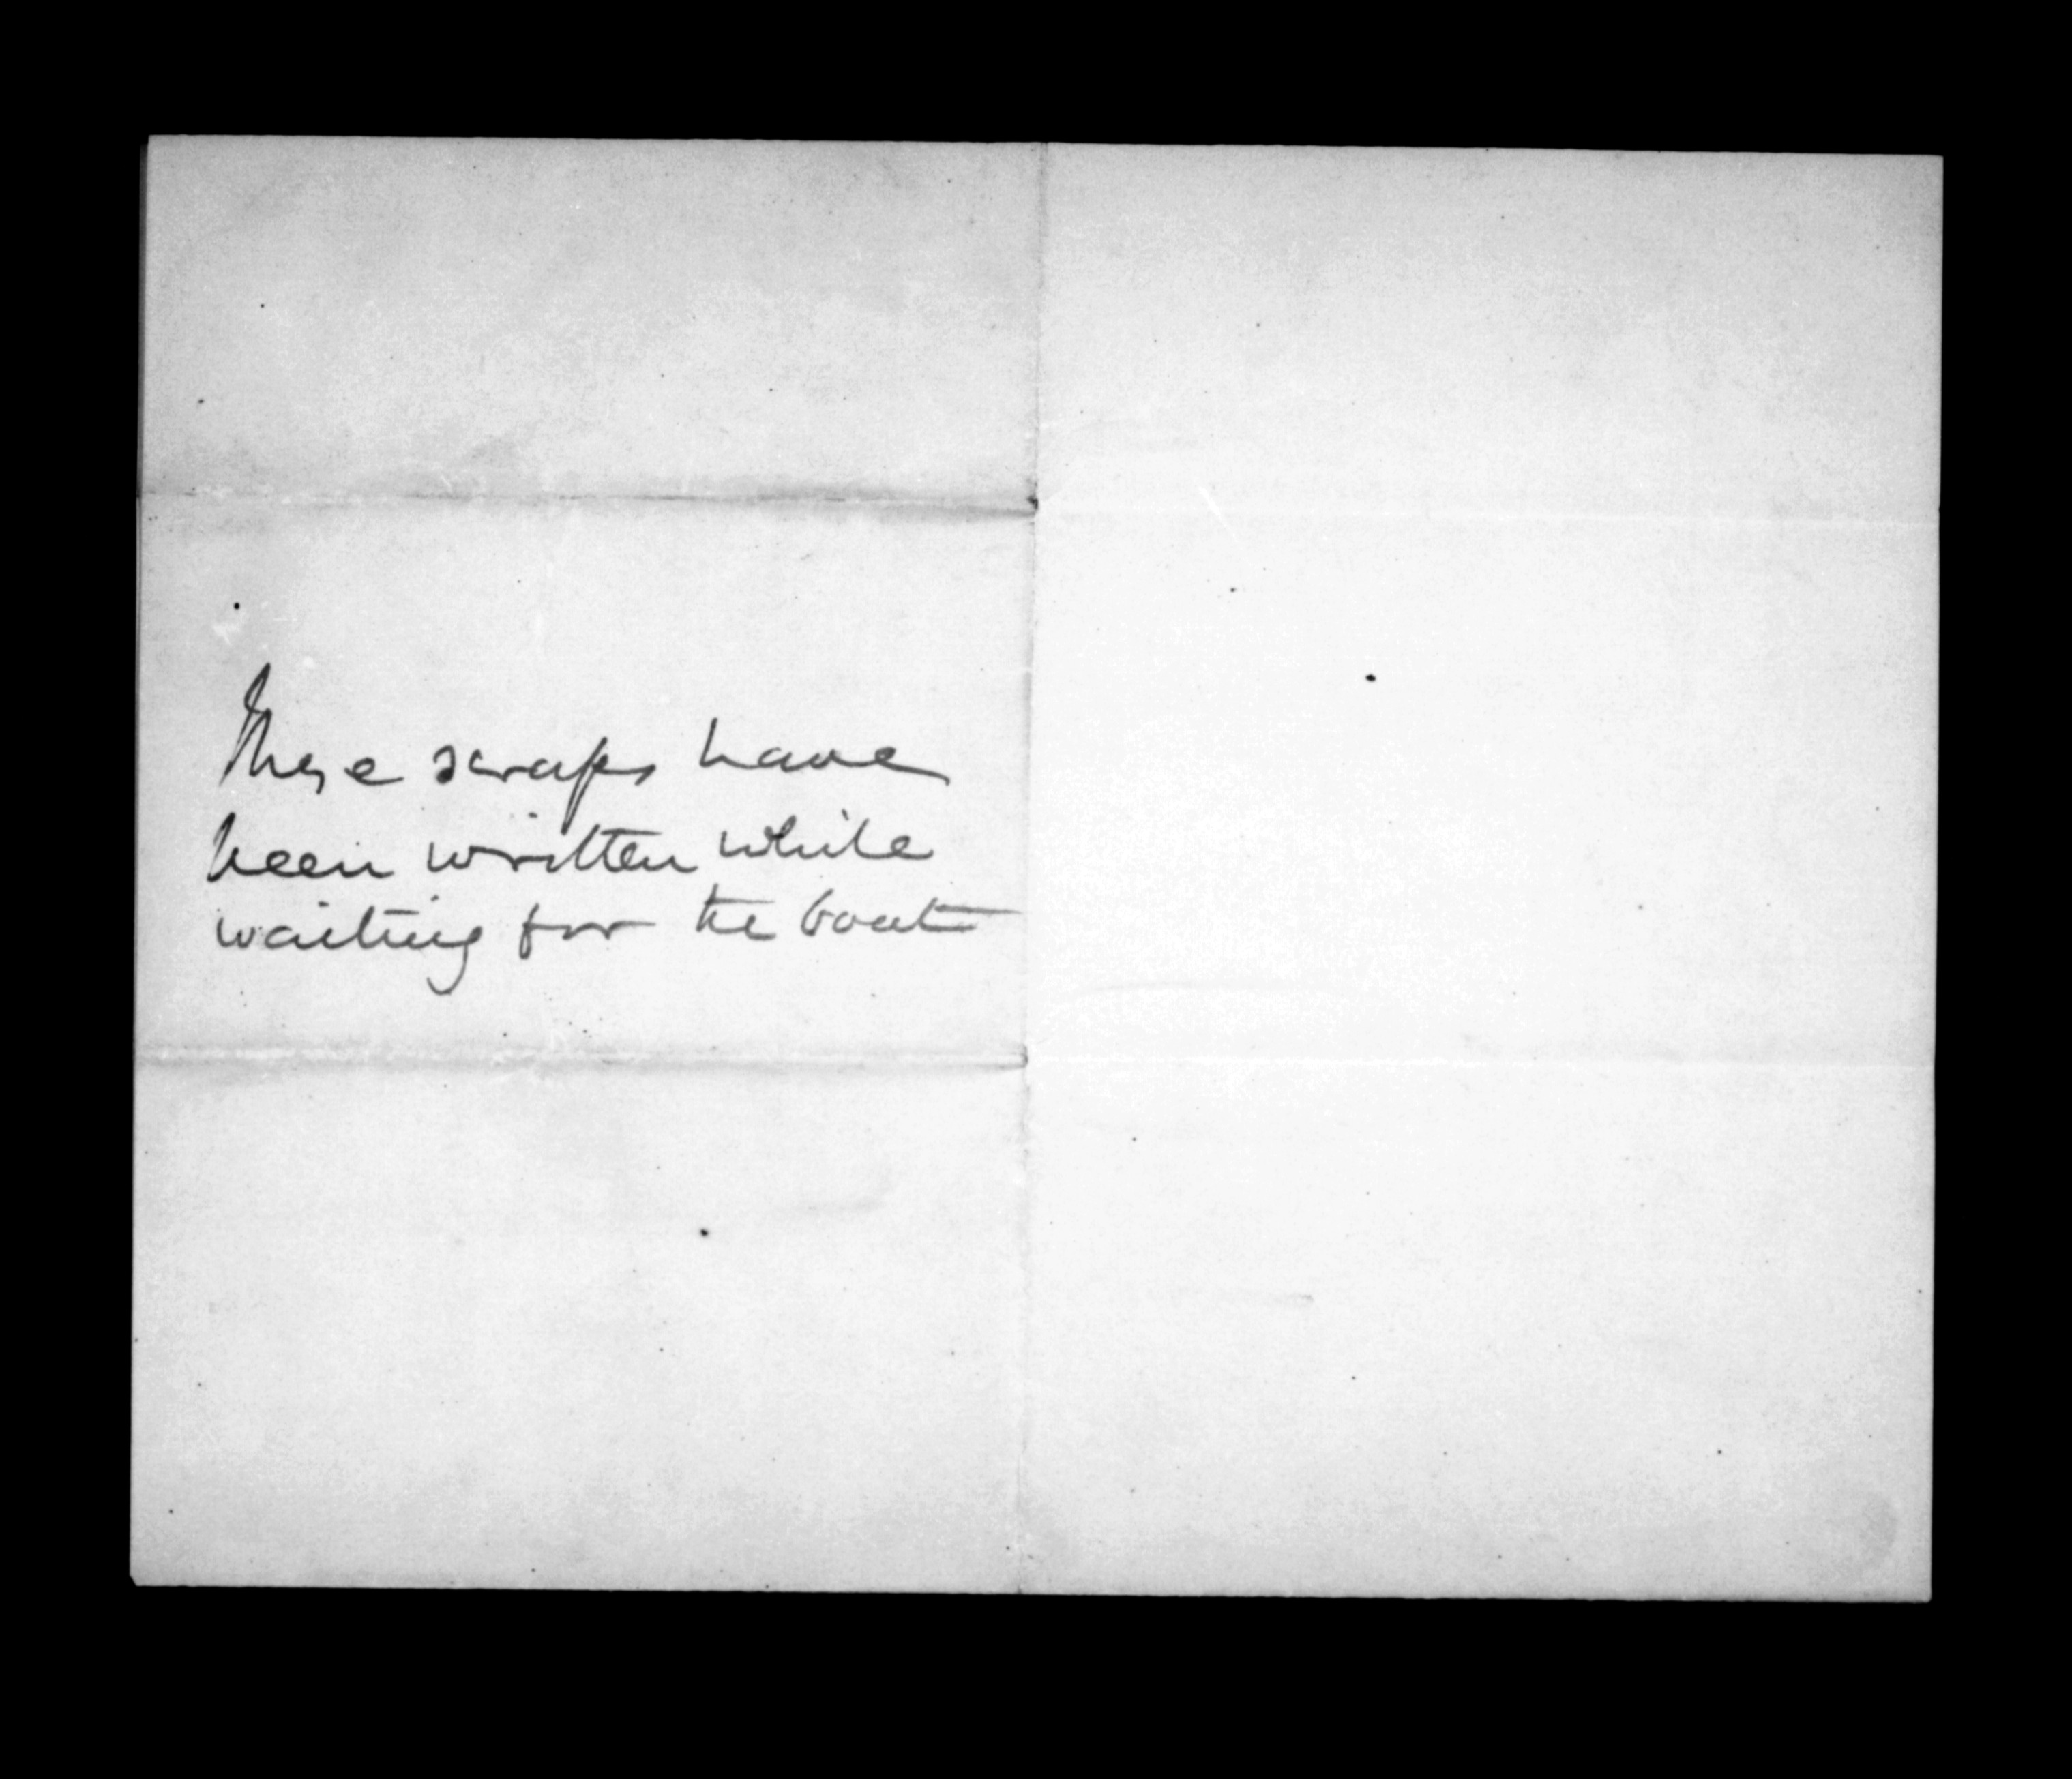 These scraps have
been written while
waiting for the boat